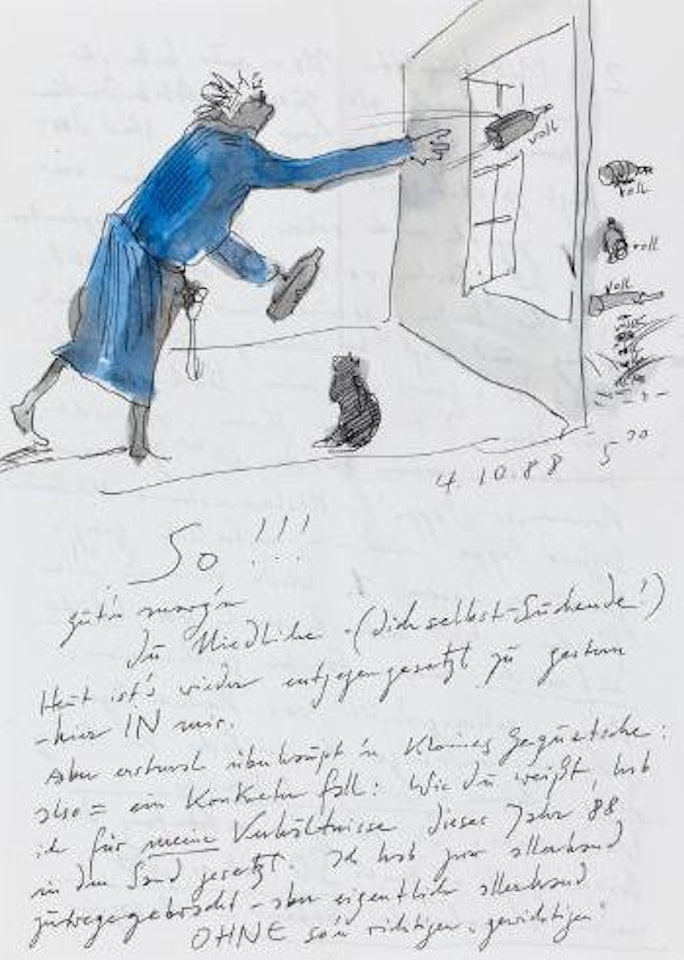 voll
voll
voll
voll
4.10.88 5³⁰
So !!!
gut'n morg'n
Du Niedliche - (Dichselbst-Suchende!)
Heut ist's wieder entgegengesetzt zu gestern
- hier IN mir.
Aber erstmal überhaupt 'n kleines Gequetsche:
also = ein konkreter Fall: Wie du weißt, hab
ich für meine Verhältnisse dieses Jahr 88
in den Sand gesetzt. Ich hab zwar allerhand
zuwegegebracht - aber eigentlich allerhand
OHNE so'n richtigen, gewichtigen